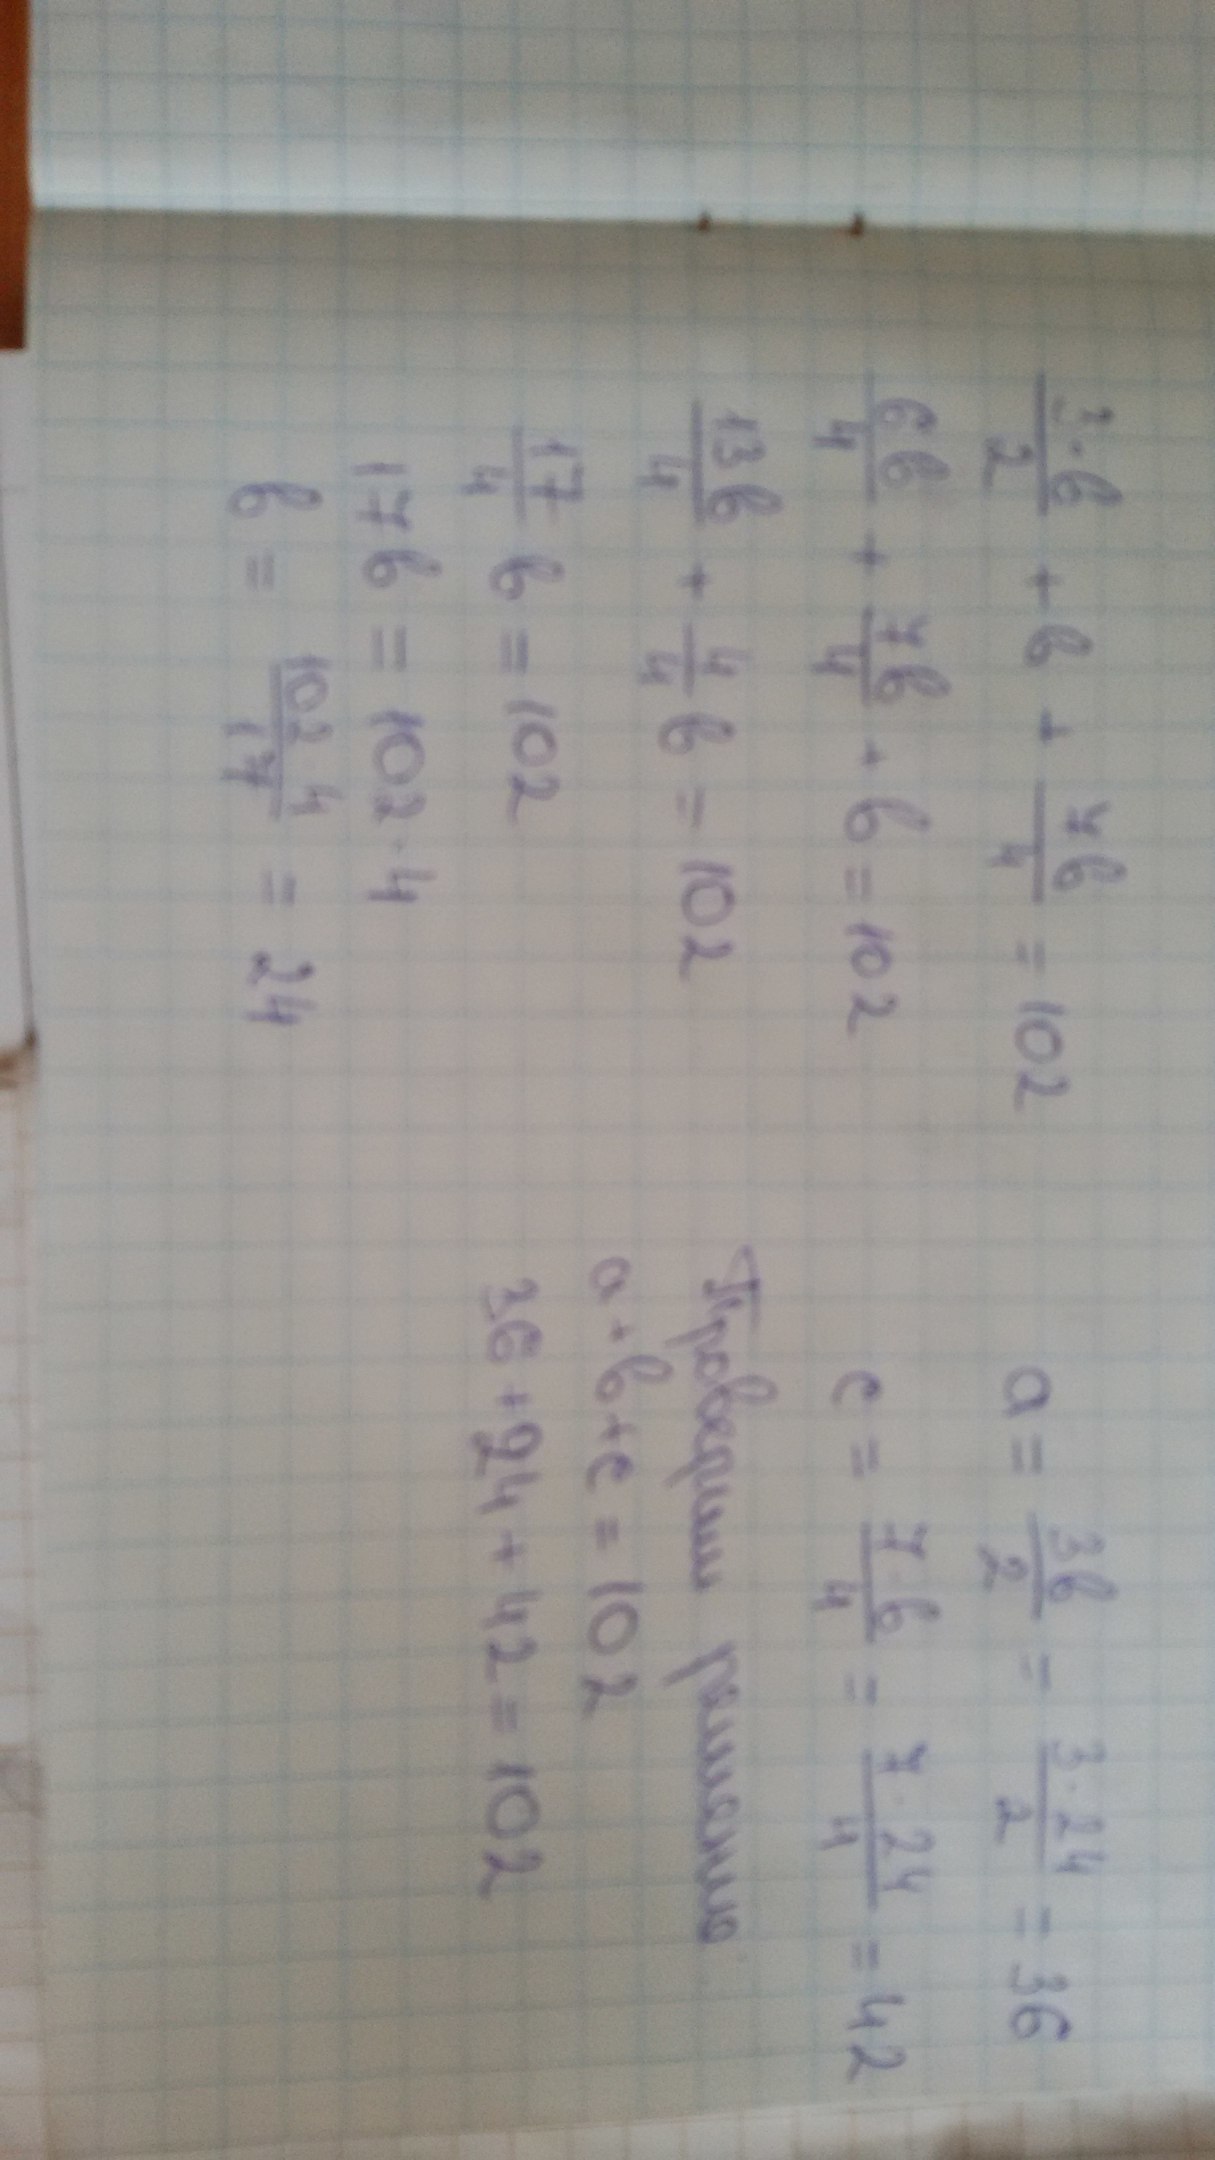 3·в/2 + в + 7в/4 = 102
6в/4 + 7в/4 + в = 102
13в/4 + 4/4 в = 102
17/4 в = 102
17в = 102·4
в = 102 4/17 = 24
a = 3в/2 = 3·24/2 = 36
c = 7·в/4 = 7·24/4 = 42
Проверим решение
a+в+c = 102
36+24+42=102